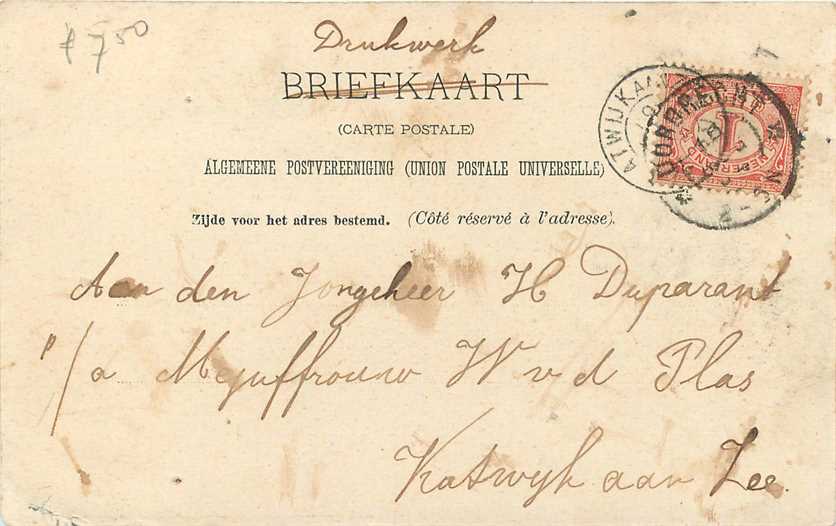 ƒ 7⁵⁰
Drukwerk
BRIEFKAART
(CARTE POSTALE)
ALGEMEENE POSTVEREENIGING (UNION POSTALE UNIVERSELLE)
Zijde voor het adres bestemd. (Côté réservé à l'adresse).
DORDRECHT
NEDERLAND
Aan den Jongeheer H Duparant
p/a Mejuffrouw W v d Plas
Katwyk aan Zee.